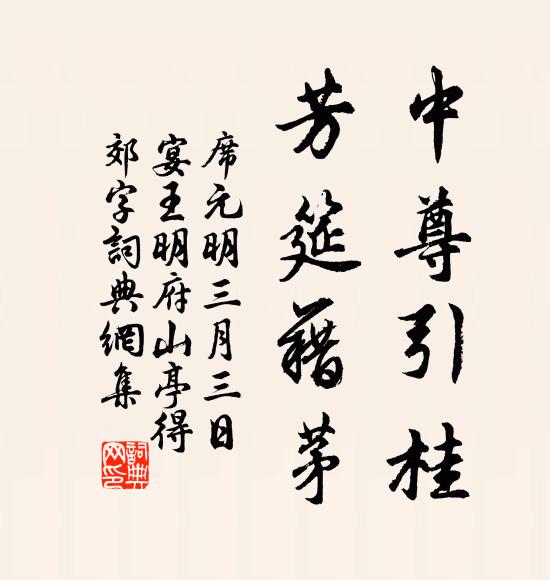 中尊引桂
芳筵藉茅
席元明三月三日
宴王明府山亭得
郊字詞典網集
詞典
网印